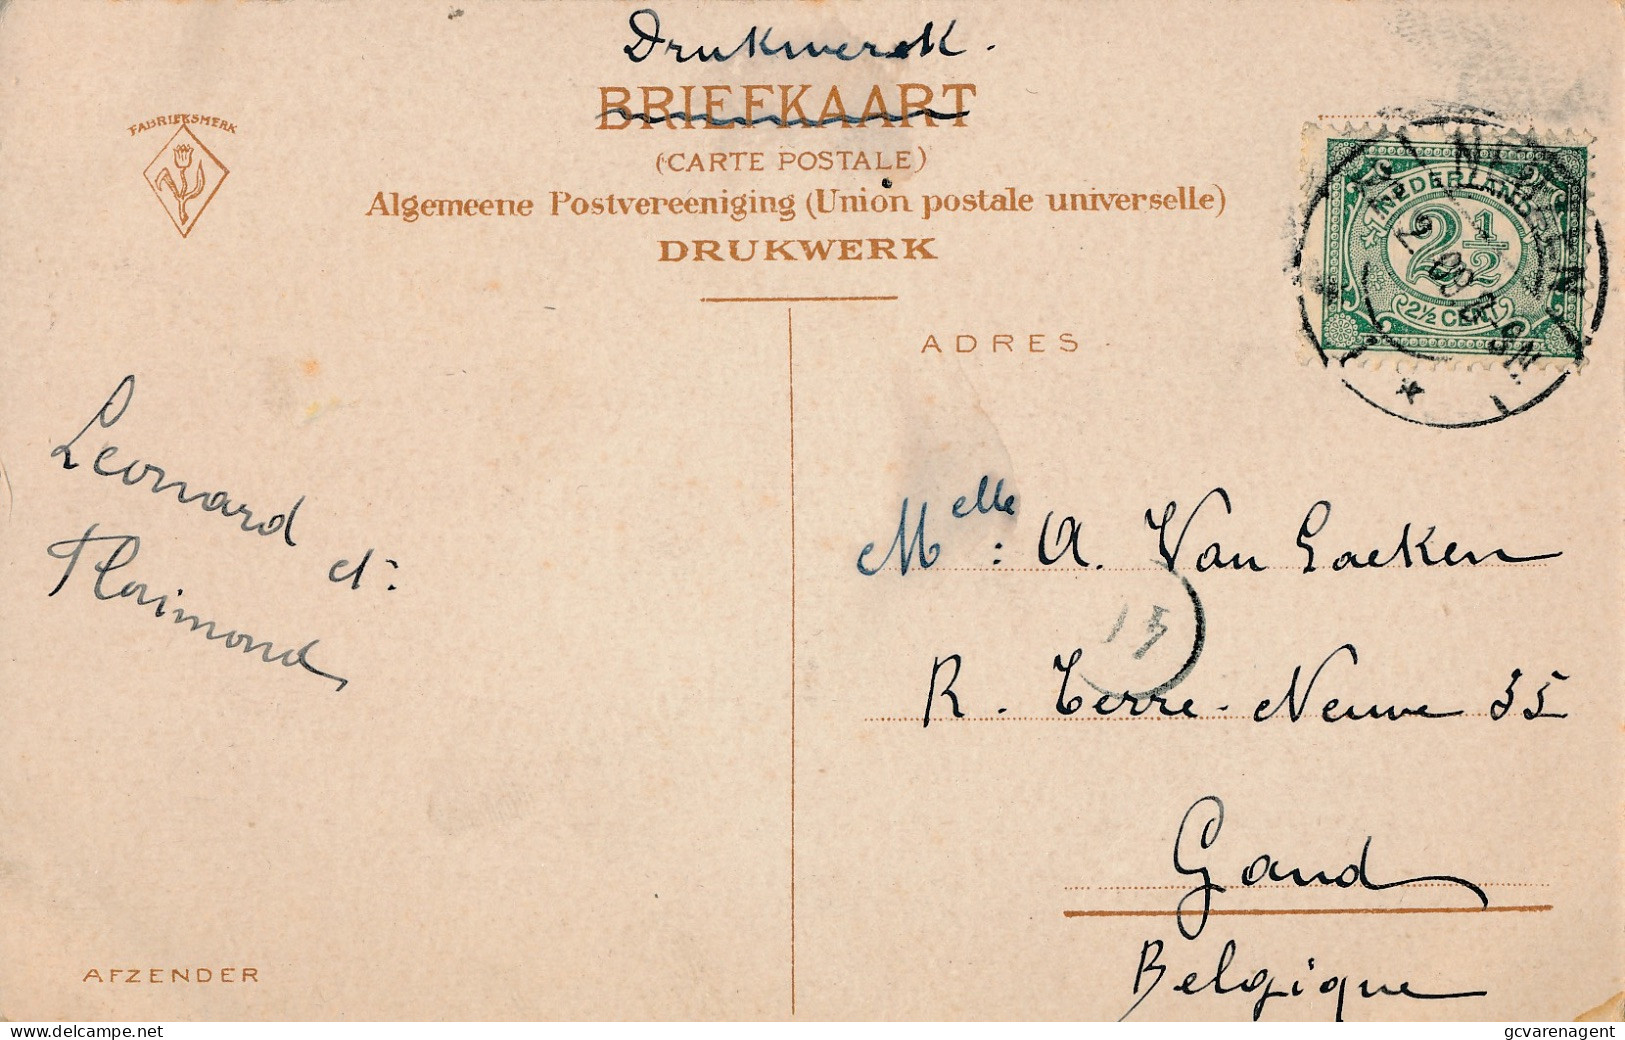 Drukwerck.
FABRIEKSMERK
BRIEFKAART
(CARTE POSTALE)
Algemeene Postvereeniging (Union postale universelle)
DRUKWERK
NEDERLAND
2½
2½ CENT
ADRES
Leonard
et:
Florimond
Melle: A. Van Laeken
15
R. Terre-Neuve 35
Gand
Belgique
AFZENDER
delcampe.net
gcvarenagent